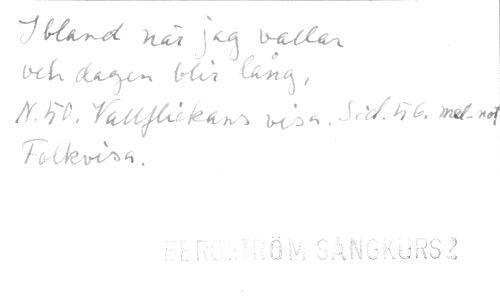 Ibland när jag vallar
och dagen blir lång,
N. 50. Vallflickans visa. Sid. 56. mel-not
Folkvisa.
BERGSTRÖM SÅNGKURS 2